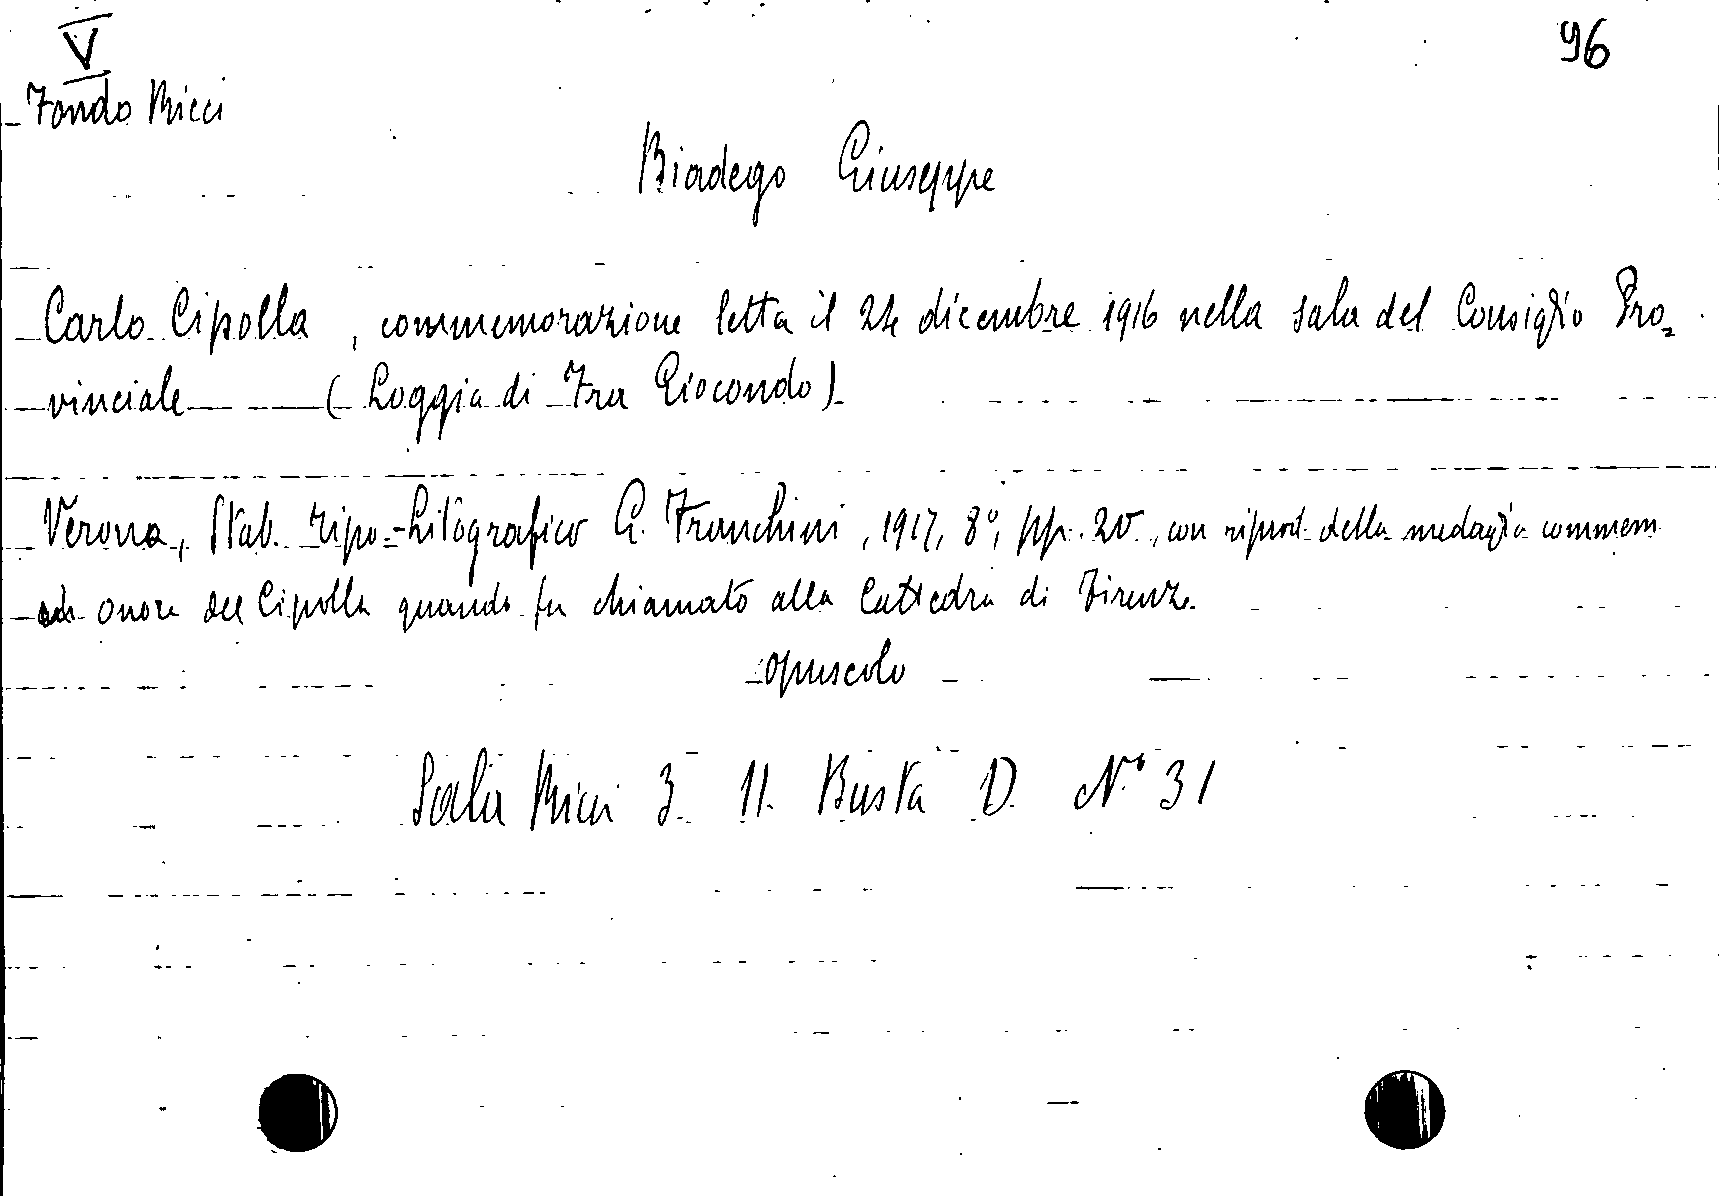 V
96
Fondo Ricci
Biadego Giuseppe
Carlo Cipolla, commemorazione letta il 24 dicembre 1916 nella sala del Consiglio Pro=
vinciale (Loggia di Fra Giocondo)
Verona, Stab. Tipo-Litografico G. Franchini, 1917, 8°, pp. 20, con riprod. della medaglia commem.
onore del Cipolla quando fu chiamato alla Cattedra di Firenze
opuscolo
Sala Ricci 3. 11. Busta D. N° 31